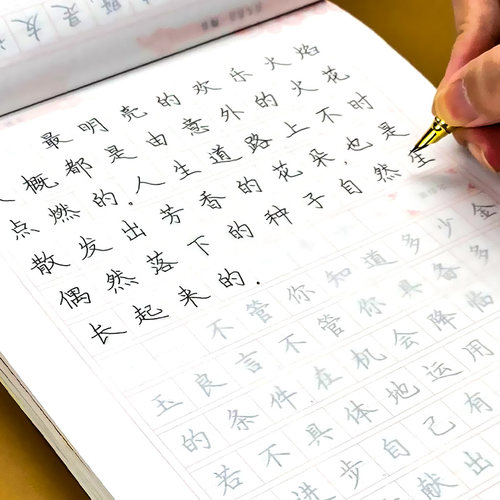 最明亮的欢乐火焰
大概都是由意外的火花
点燃的。人生道路上不时
散发出芳香的花朵,也是
偶然落下的种子自然生
长起来的.
不管你知道多少金
玉良言不管你具备多
的条件在机会降临
若不具体地运用
进步自己有
献出